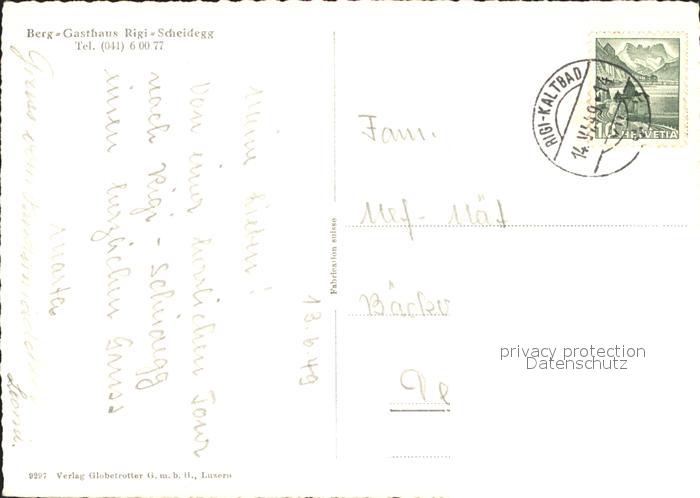 Berg-Gasthaus Rigi-Scheidegg
Tel. (041) 6 00 77
13.6.49
Meine Lieben!
Von einer herrlichen Tour
nach Rigi-Scheidegg
einen herzlichen Gruss
Martha
Gruss vom
Leoni.
Fabrication suisse
RIGI-KALTBAD
14.VI.49
10 HELVETIA
Fam.
Nef-Näf
Bäcke
privacy protection
Datenschutz
9297 Verlag Globetrotter G.m.b.H., Luzern